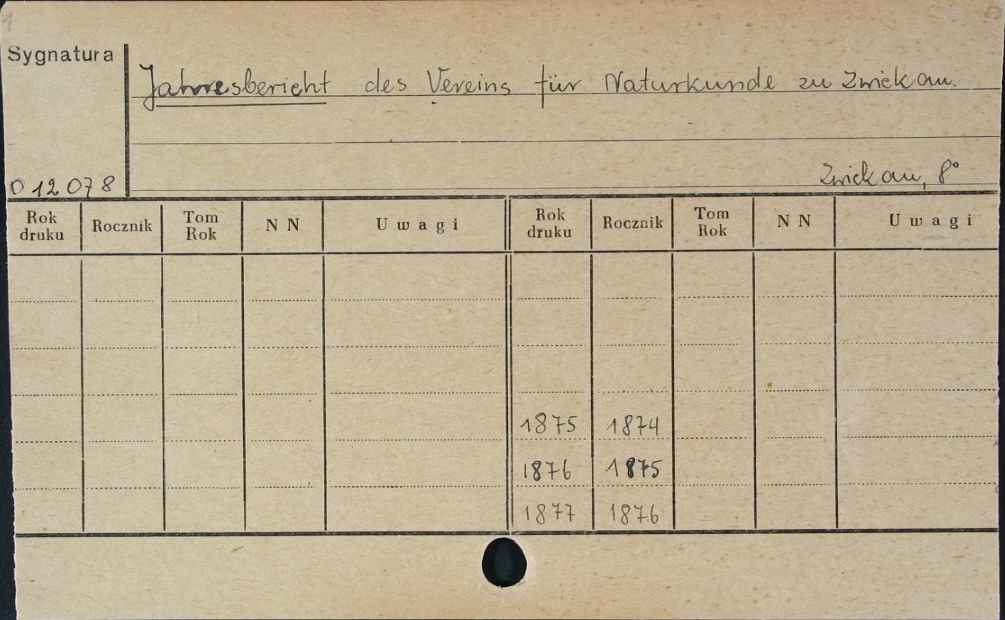 Sygnatura
Jahresbericht des Vereins für Naturkunde zu Zwickau.
Zwickau, 8°
O 12 078
Rok druku Rocznik Tom Rok N N Uwagi Rok druku Rocznik Tom Rok N N Uwagi
1875 1874
1876 1875
1877 1876